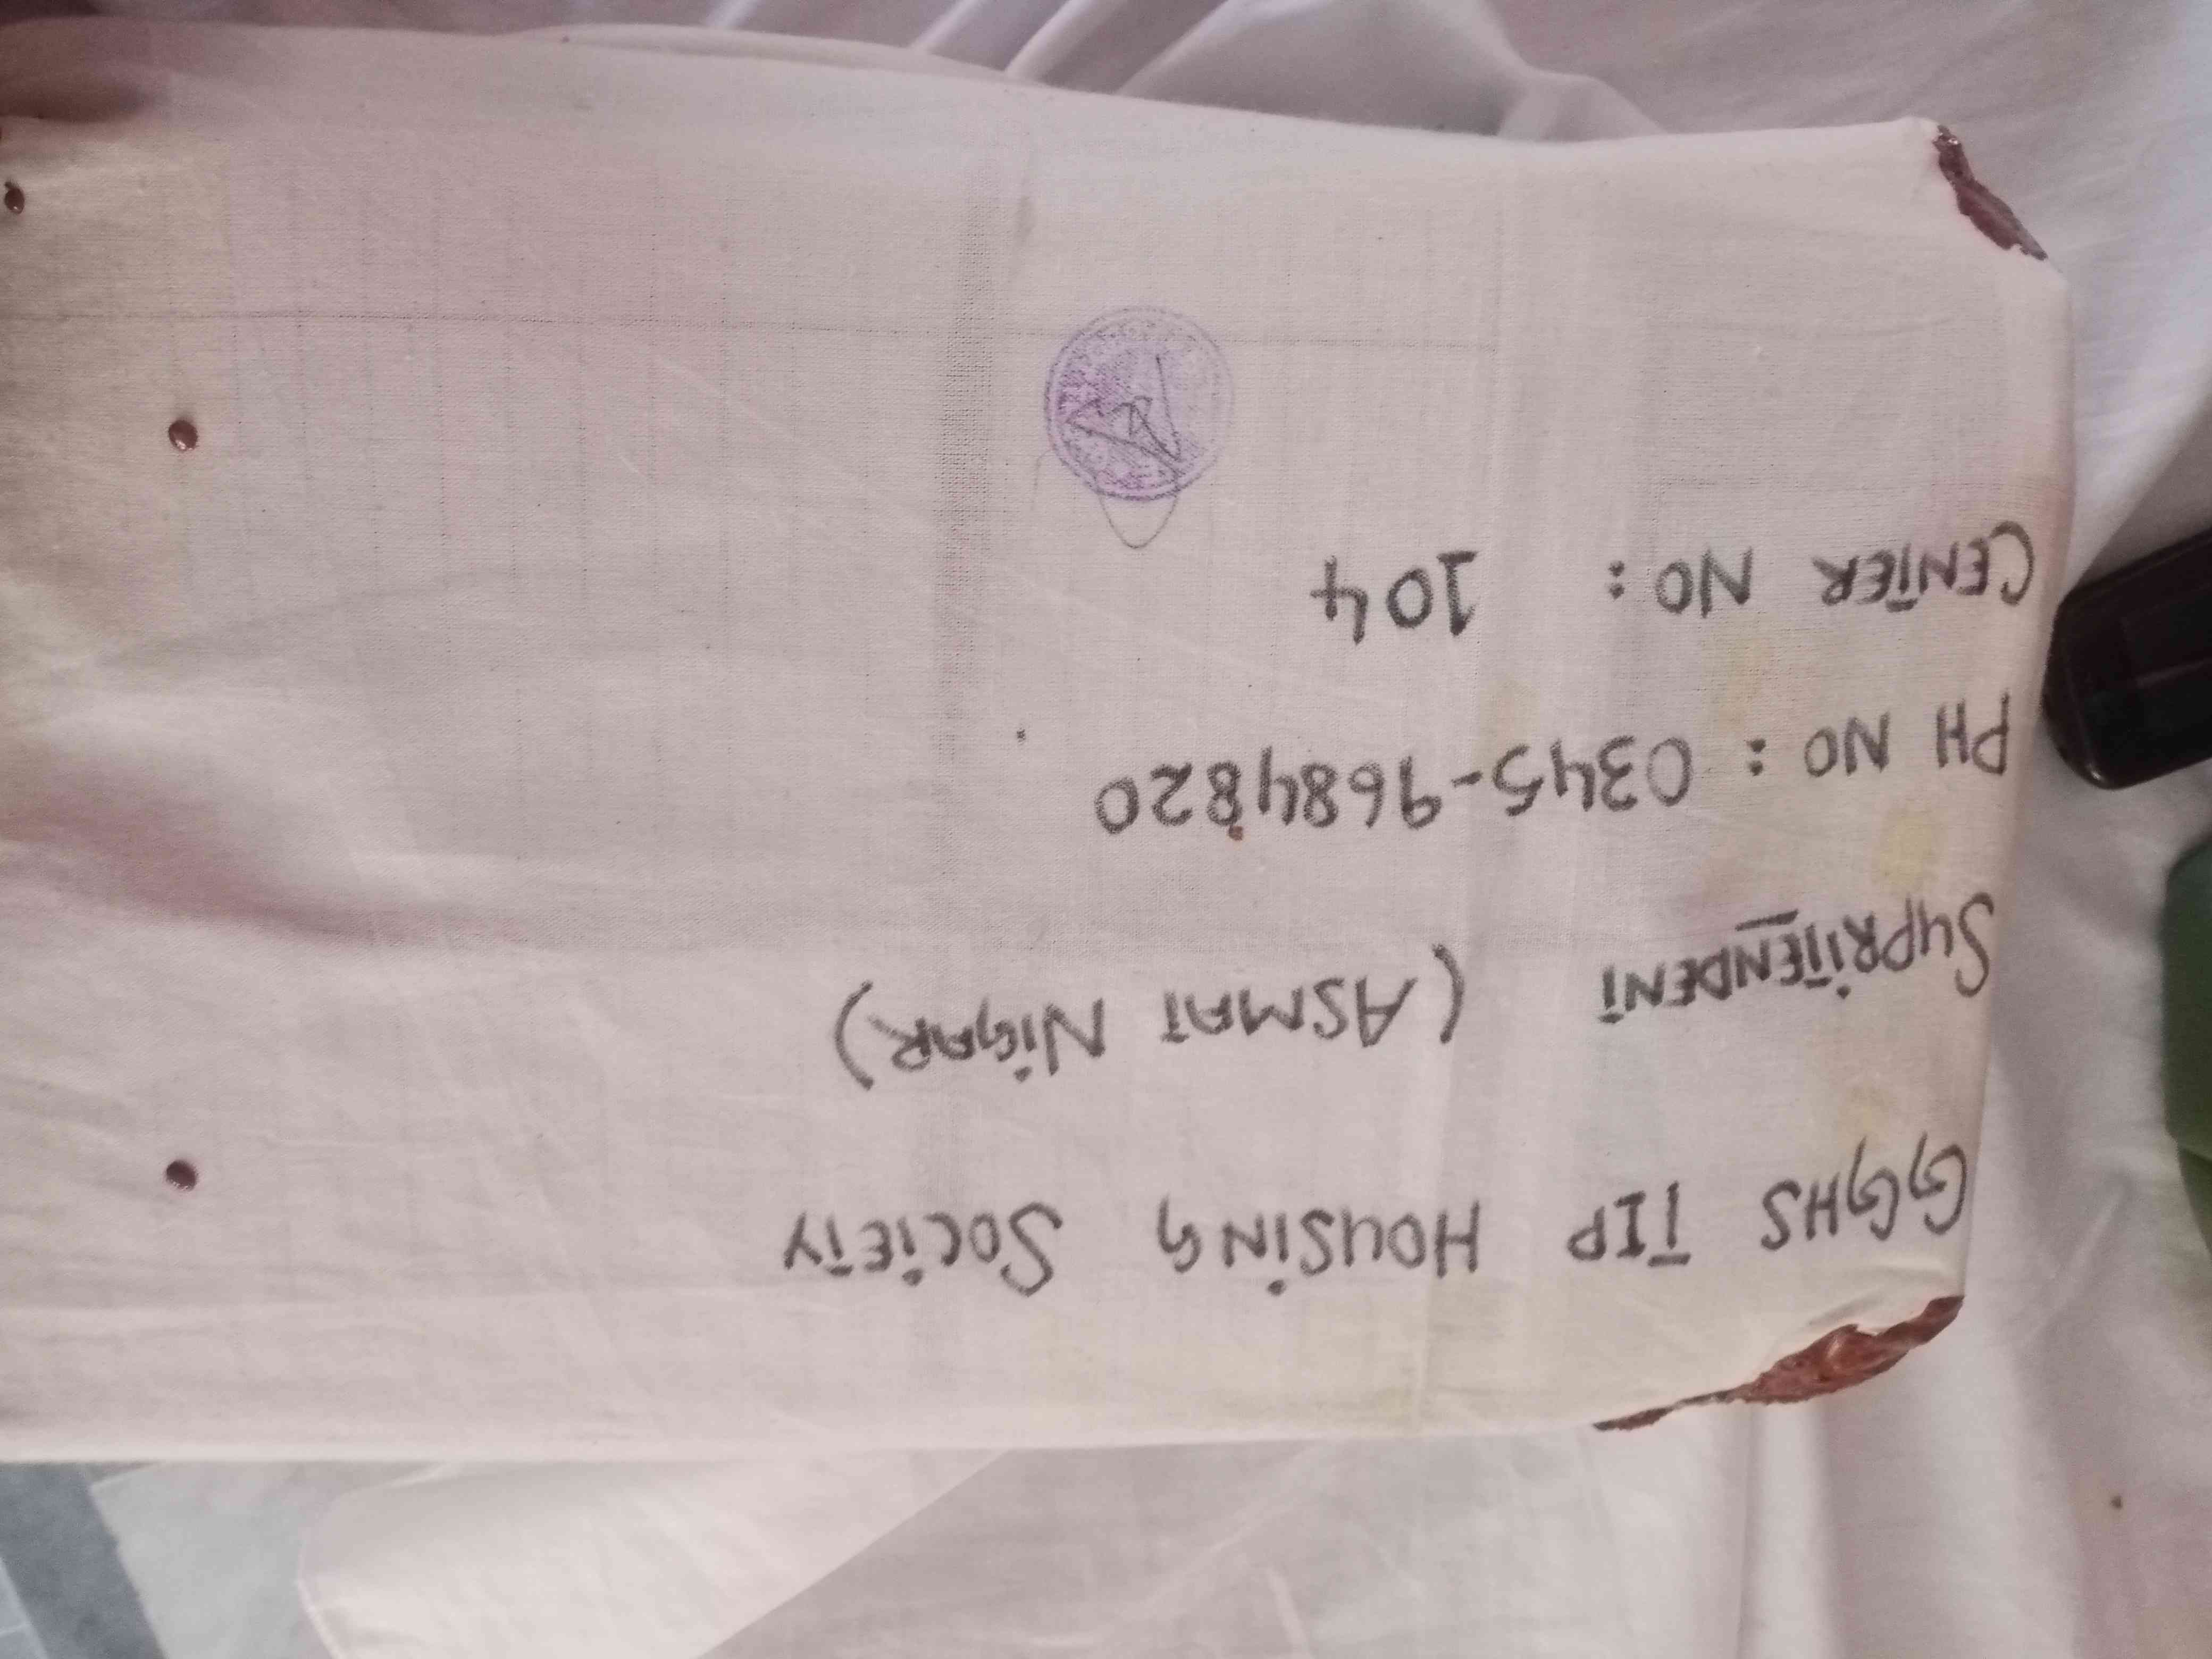 GGHS TIP HOUSING SOCIETY
SUPRITENDENT (ASMAT NIGAR)
PH NO: 0345-9684820
CENTER NO: 104